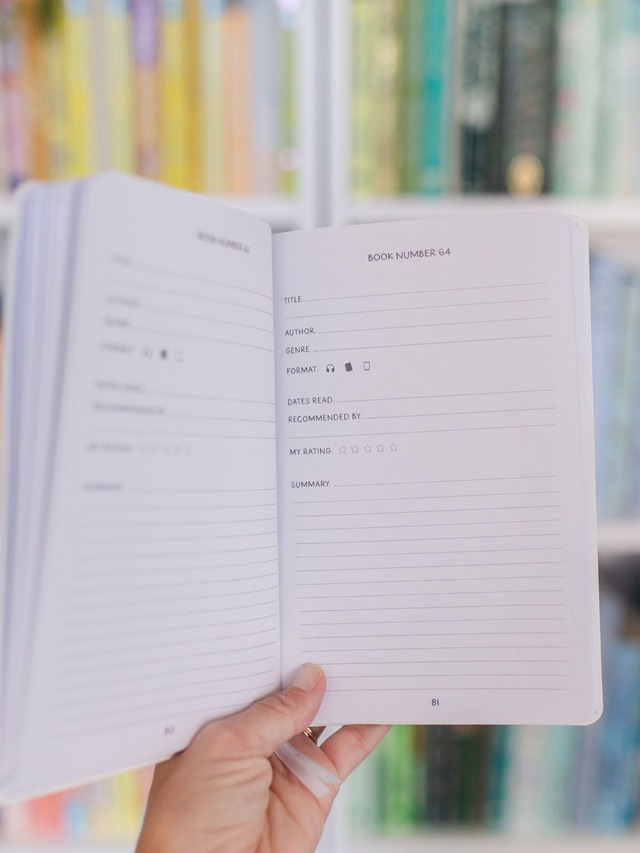 BOOK NUMBER
TITLE
AUTHOR
GENRE
FORMAT
DATES READ
RECOMMENDED BY
MY RATING
SUMMARY
80
BOOK NUMBER 64
TITLE
AUTHOR
GENRE:
FORMAT:
DATES READ:
RECOMMENDED BY:
MY RATING:
SUMMARY:
81